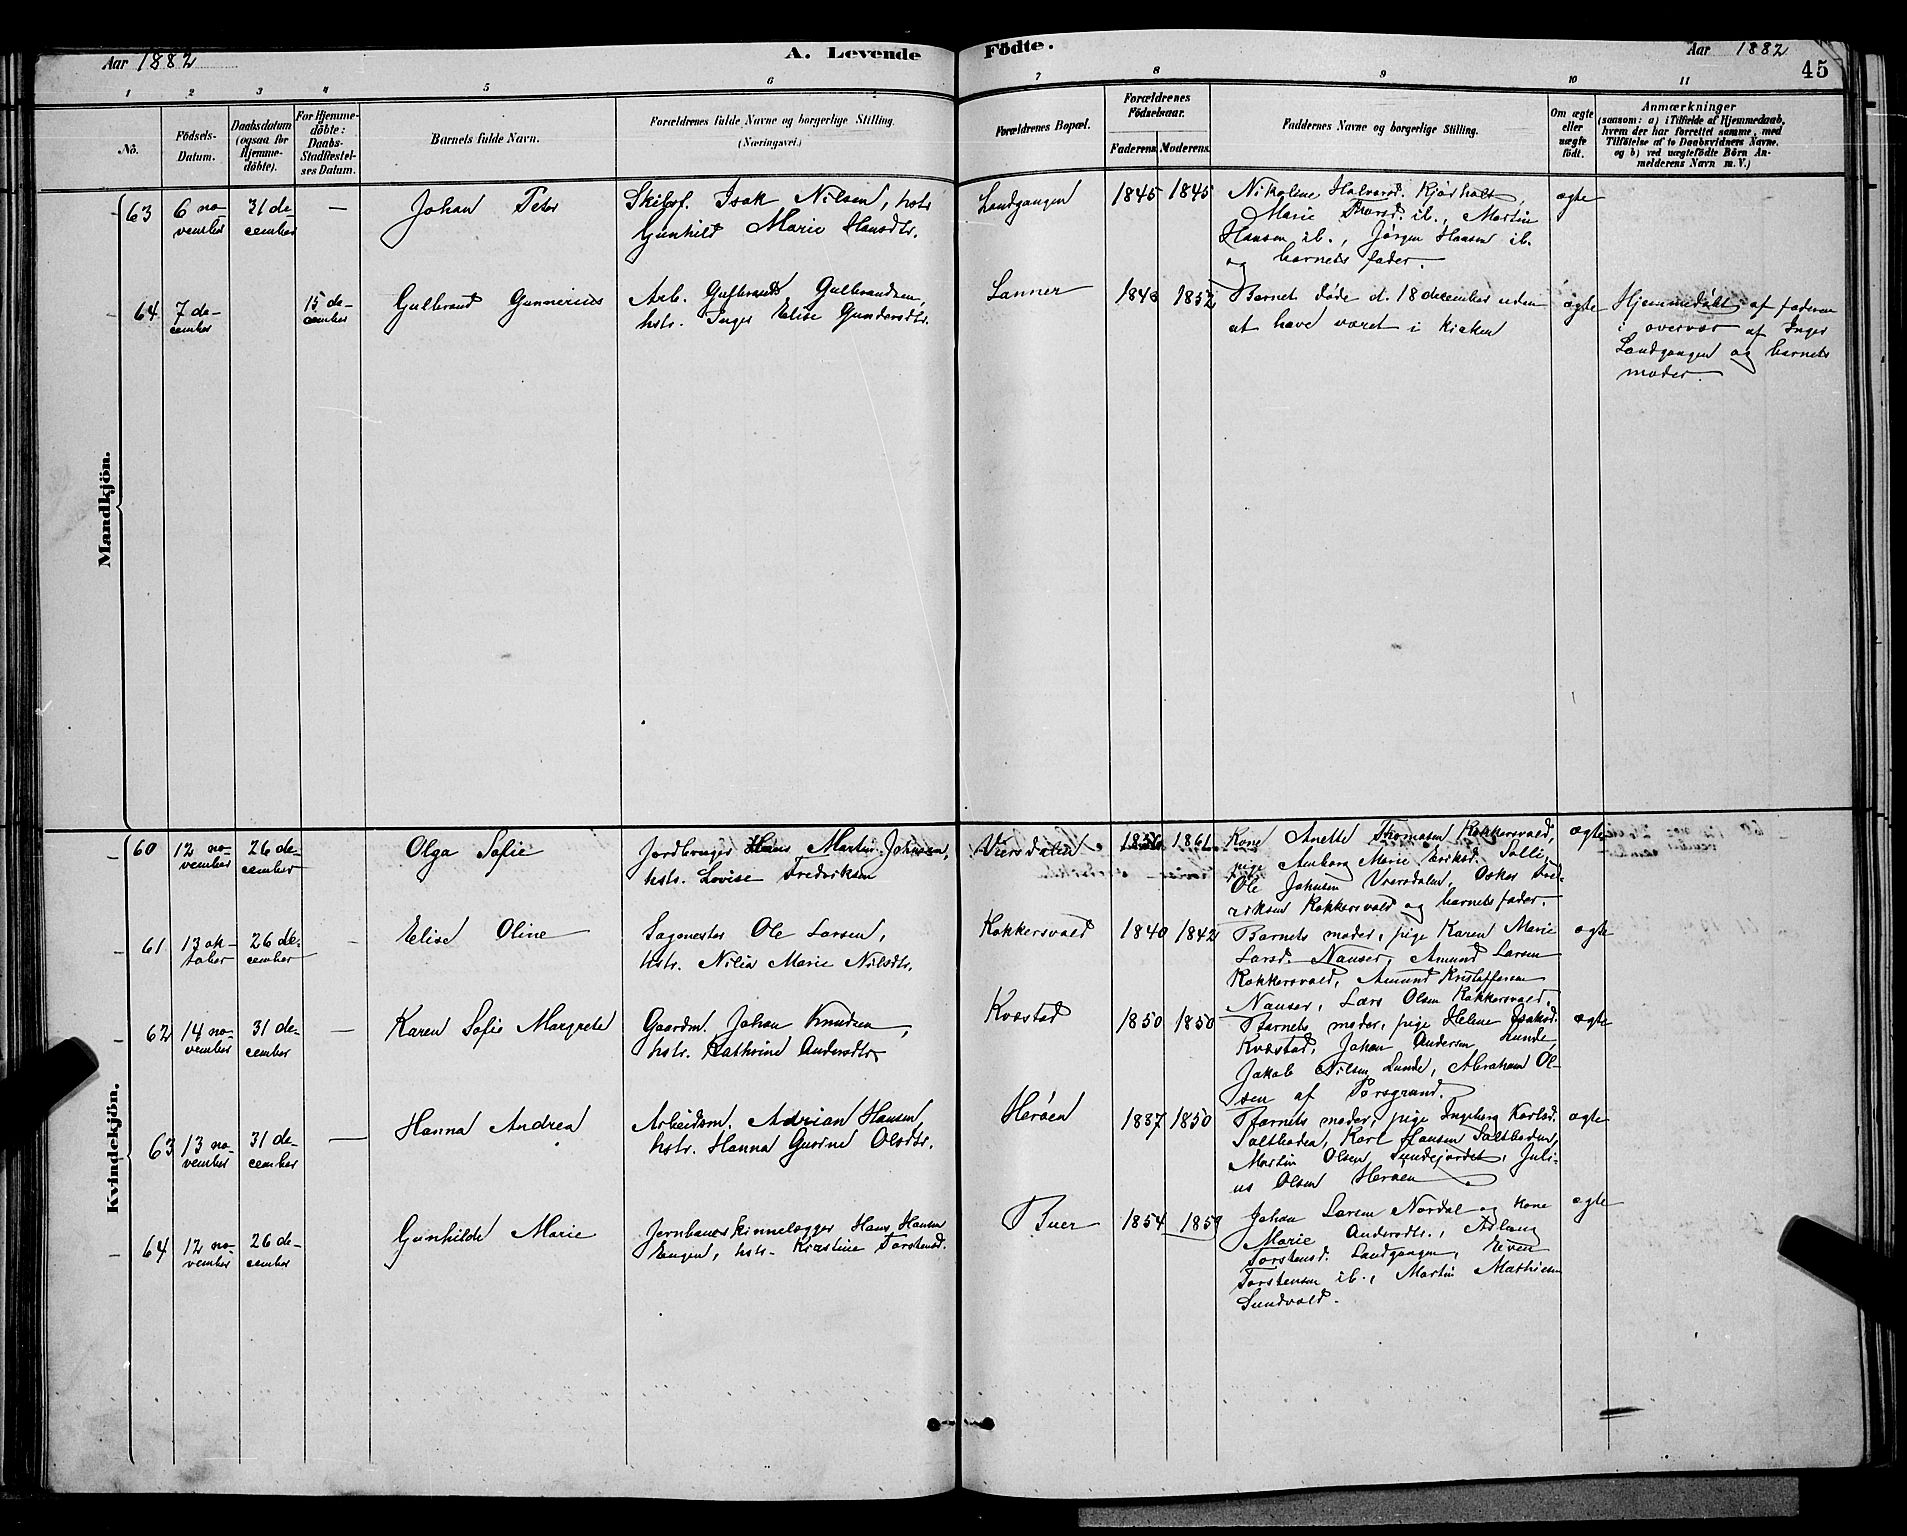 Aar 1882
A. Levende Födte.
Aar 1882
45
1 2 3 4 5 6 7 8 9 10 11
No.
Födsels-
Datum.
Daabsdatum
(ogsaa for
Hjemme-
döbte).
For Hjemme-
döbte:
Daabs-
Stadfæstel-
ses Datum.
Barnets fulde Navn.
Forældrenes fulde Navne og borgerlige Stilling.
(Næringsvei.)
Forældrenes Bopæl.
Forældrenes
Födselsaar.
Faderens. Moderens.
Faddernes Navne og borgerlige Stilling.
Om ægte
eller
uægte
födt.
Anmærkninger
(saasom: a) i Tilfælde af Hjemmedaab,
hvem der har forrettet samme, med
Tilföielse af to Daabsvidners Navne.
og b) ved uægtefödte Börn An-
melderens Navn m. V.)
Mandkjön.
63
6 no-
vember
31 de-
cember
—
Johan Peter
Skibsf. Isak Nilsen, hstr
Gunhild Marie Hansdtr.
Landgangen
1845
1845
Nikoline Halvorsd. Kjørholt,
Marie Thorsd. ib., Martin
Hansen ib., Jørgen Hansen ib.
og barnets fader.
ægte
64
7 de-
cember
15 de-
cember
Gulbrand Gunnerius
Arb. Gulbrand Gulbrandsen,
hstr. Inger Elise Gundersdtr.
Lanner
1843
1852
Barnet døde d. 18 december uden
at have været i kirken
ægte
Hjemmedøbt af faderen
i overvær af Inger
Landgangen og barnets
moder.
Kvindekjön.
60
12 no-
vember
26 de-
cember
Olga Sofie
Jordbruger Hans Martin Johnsen,
hstr. Lovise Fredriksen
Viersdalen
1856
1861
Kone Anette Thomasen Kokkersvold,
pige Anborg Marie Eriksd. Solli,
Ole Johnsen Viersdalen, Oskar Fred-
riksen Kokkersvold og barnets fader.
ægte
61
13 ok-
tober
26 de-
cember
—
Elise Oline
Sagmester Ole Larsen,
hstr. Nilia Marie Nilsdtr.
Kokkersvold
1840
1842
Barnets moder, pige Karen Marie
Larsd. Nanset, Amund Larsen
Kokkersvold, Amund Kristoffersen
Nanset, Lars Olsen Kokkersvold.
ægte
62
14 no-
vember
31 de-
cember
—
Karen Sofie Margrete
Gaardm. Johan Knudsen,
hstr. Kathrine Andersdtr.
Kvæstad
1850
1850
Barnets moder, pige Helene Isaksd.
Kvæstad, Johan Andersen Lunde,
Jakob Nilsen Lunde, Abraham Ol-
sen af Porsgrund.
ægte
63
13 no-
vember
31 de-
cember
—
Hanna Andrea
Arbeidsm. Adrian Hansen,
hstr. Hanna Gurine Olsdtr.
Herøen
1837
1850
Barnets moder, pige Ingeborg Karlsd.
Saltboden, Karl Hansen Saltboden,
Martin Olsen Sundejordet, Juli-
us Olsen Herøen
ægte
64
12 no-
vember
26 de-
cember
Gunhilde Marie
Jernbaneskinnelægger Hans Hansen
Engen, hstr. Kirstine Torstensd.
Buer
1854
1859
Johan Larsen Nordal og kone
Marie Andersdtr., Aslaug
Torstensd. Landgangen, Even
Torstensen ib., Martin Mathisen
Sundvold.
ægte